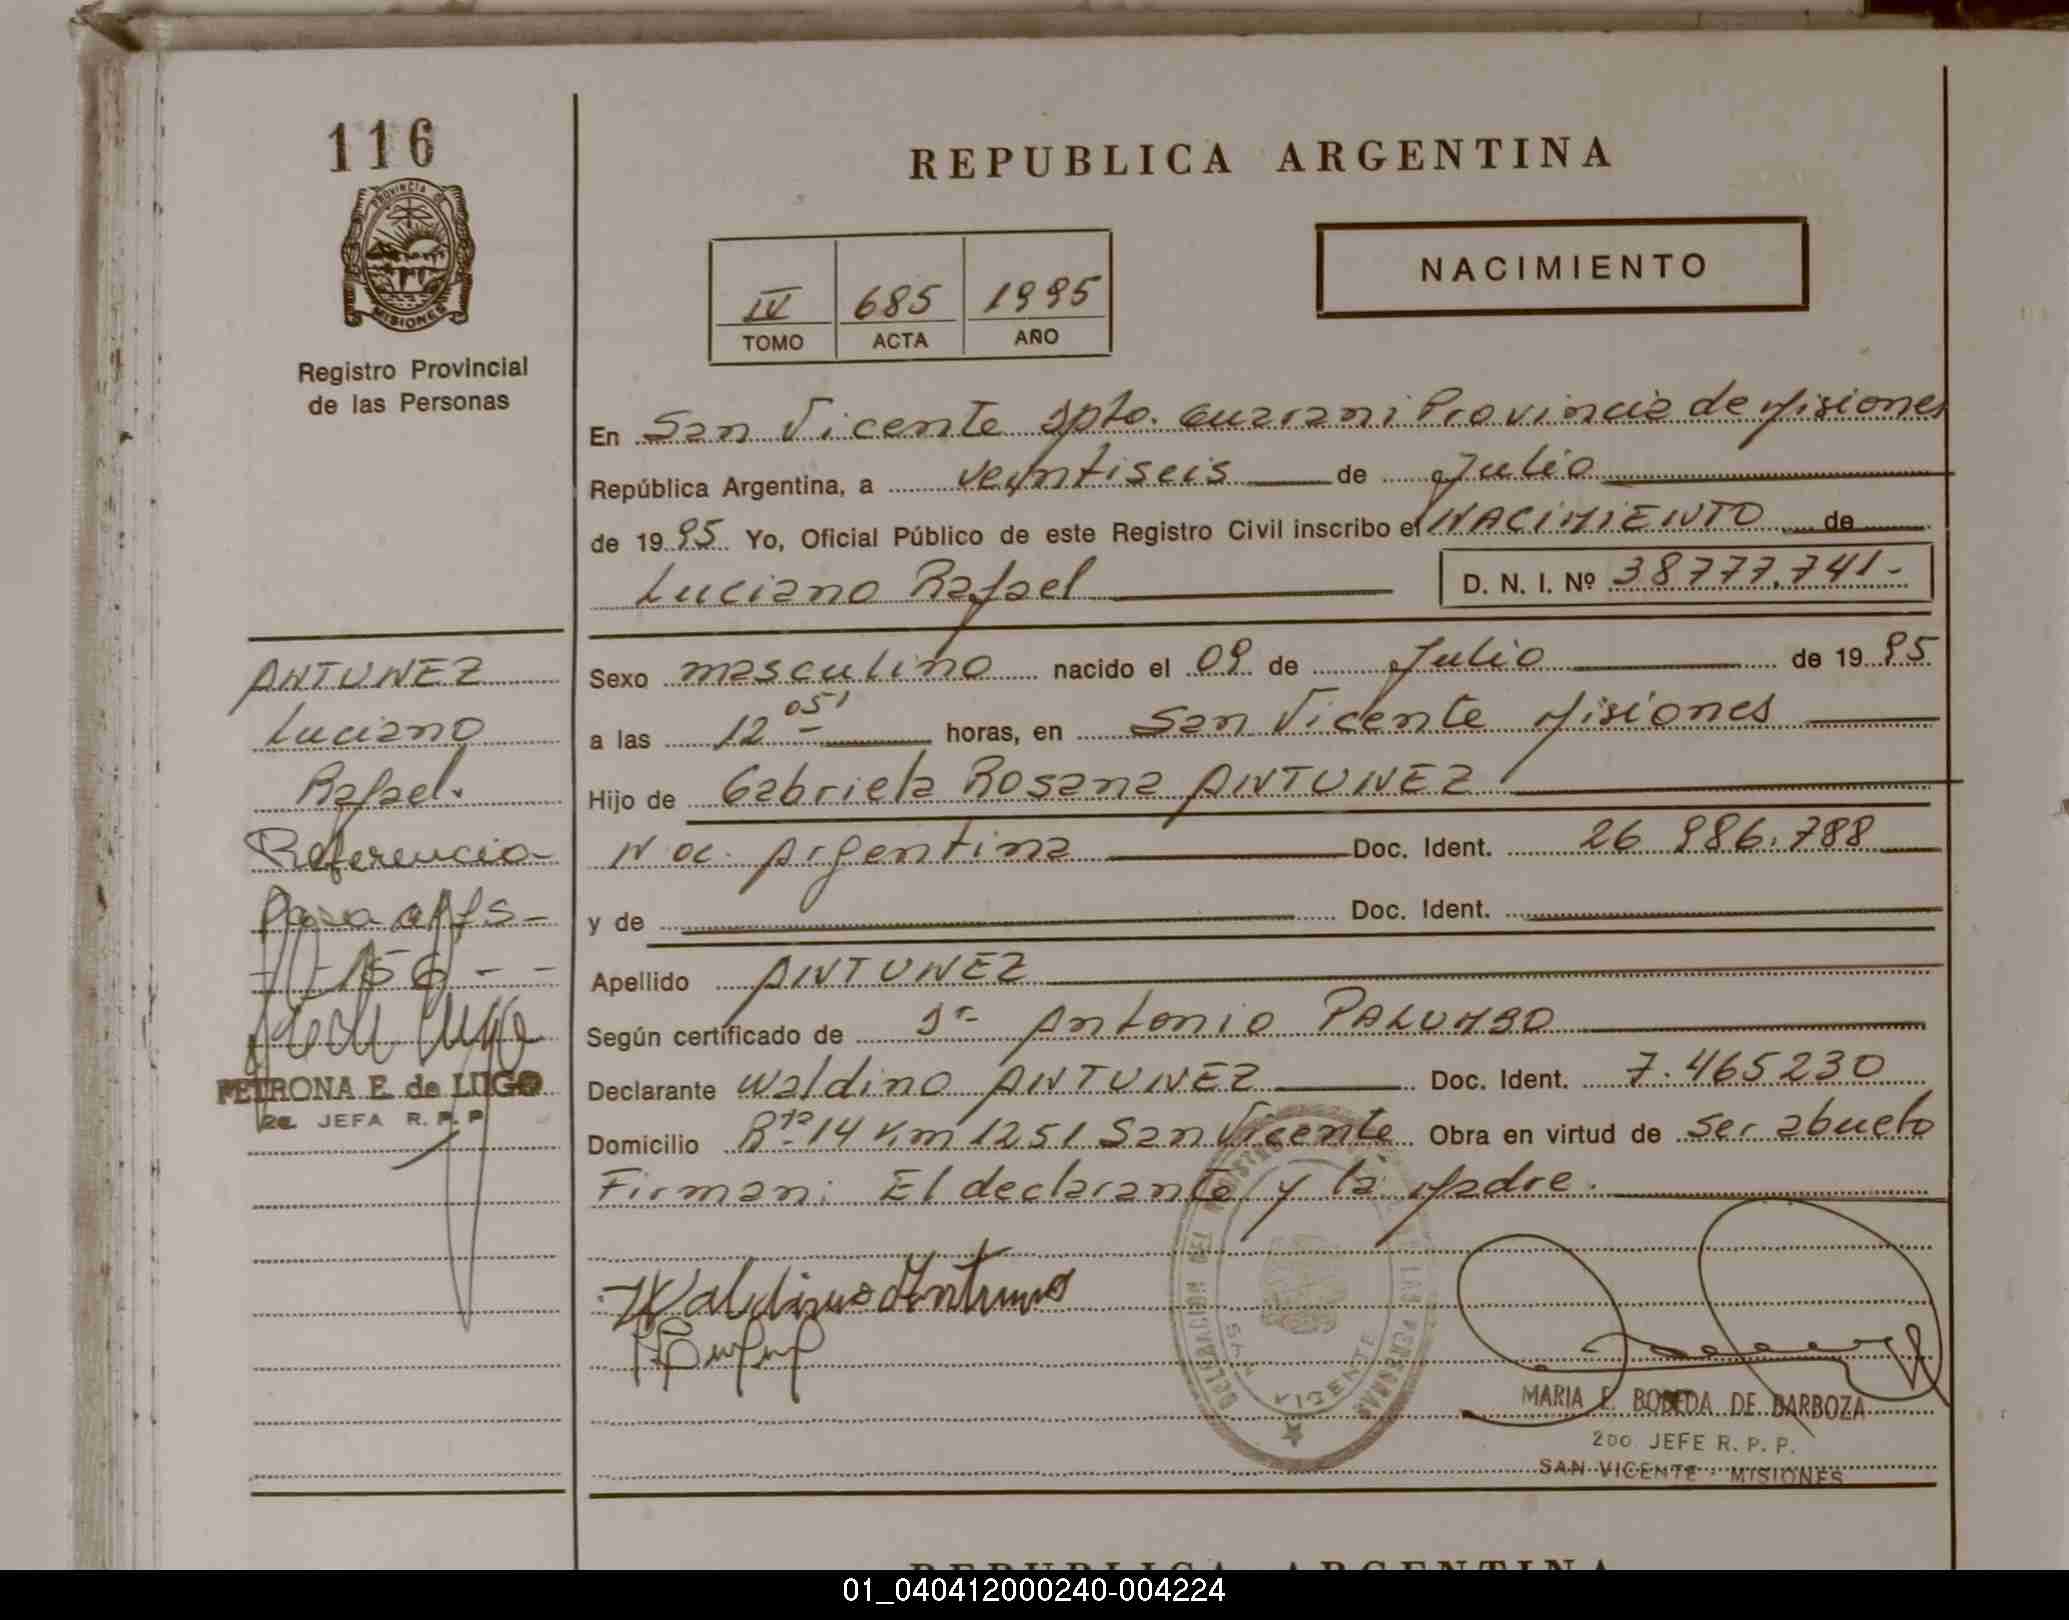 116
PROVINCIA DE
MISIONES
Registro Provincial
de las Personas
REPUBLICA ARGENTINA
NACIMIENTO
IV 685 1995
TOMO ACTA AÑO
En San Vicente Dpto. Guarani Provincia de Misiones
República Argentina, a veintiseis de Julio
de 1995 Yo, Oficial Público de este Registro Civil inscribo el NACIMIENTO de
Luciano Rafael D. N. I. Nº 38777.741-
Sexo masculino nacido el 09 de Julio de 1995
a las 12 05' horas, en San Vicente Misiones
Hijo de Gabriela Rosana ANTUNEZ
Nac. Argentina Doc. Ident. 26 986.788
y de Doc. Ident.
Apellido ANTUNEZ
Según certificado de Dr Antonio PALUMBO
Declarante Waldino ANTUNEZ Doc. Ident. 7.465230
Domicilio Rta 14 Km 1251 San Vicente Obra en virtud de ser abuelo
Firman: El declarante y la Madre.
ANTUNEZ
Luciano
Rafael.
Referencia
Pasa al fs-
-156--
PETRONA E. de LUGO
2a. JEFA R. P. P
Waldino
DELEGACION DEL REGISTRO DE LAS PERSONAS
SAN VICENTE
MARIA E. BOBEDA DE BARBOZA
2DO. JEFE R. P. P.
SAN VICENTE - MISIONES
REPUBLICA ARGENTINA
01_040412000240-004224